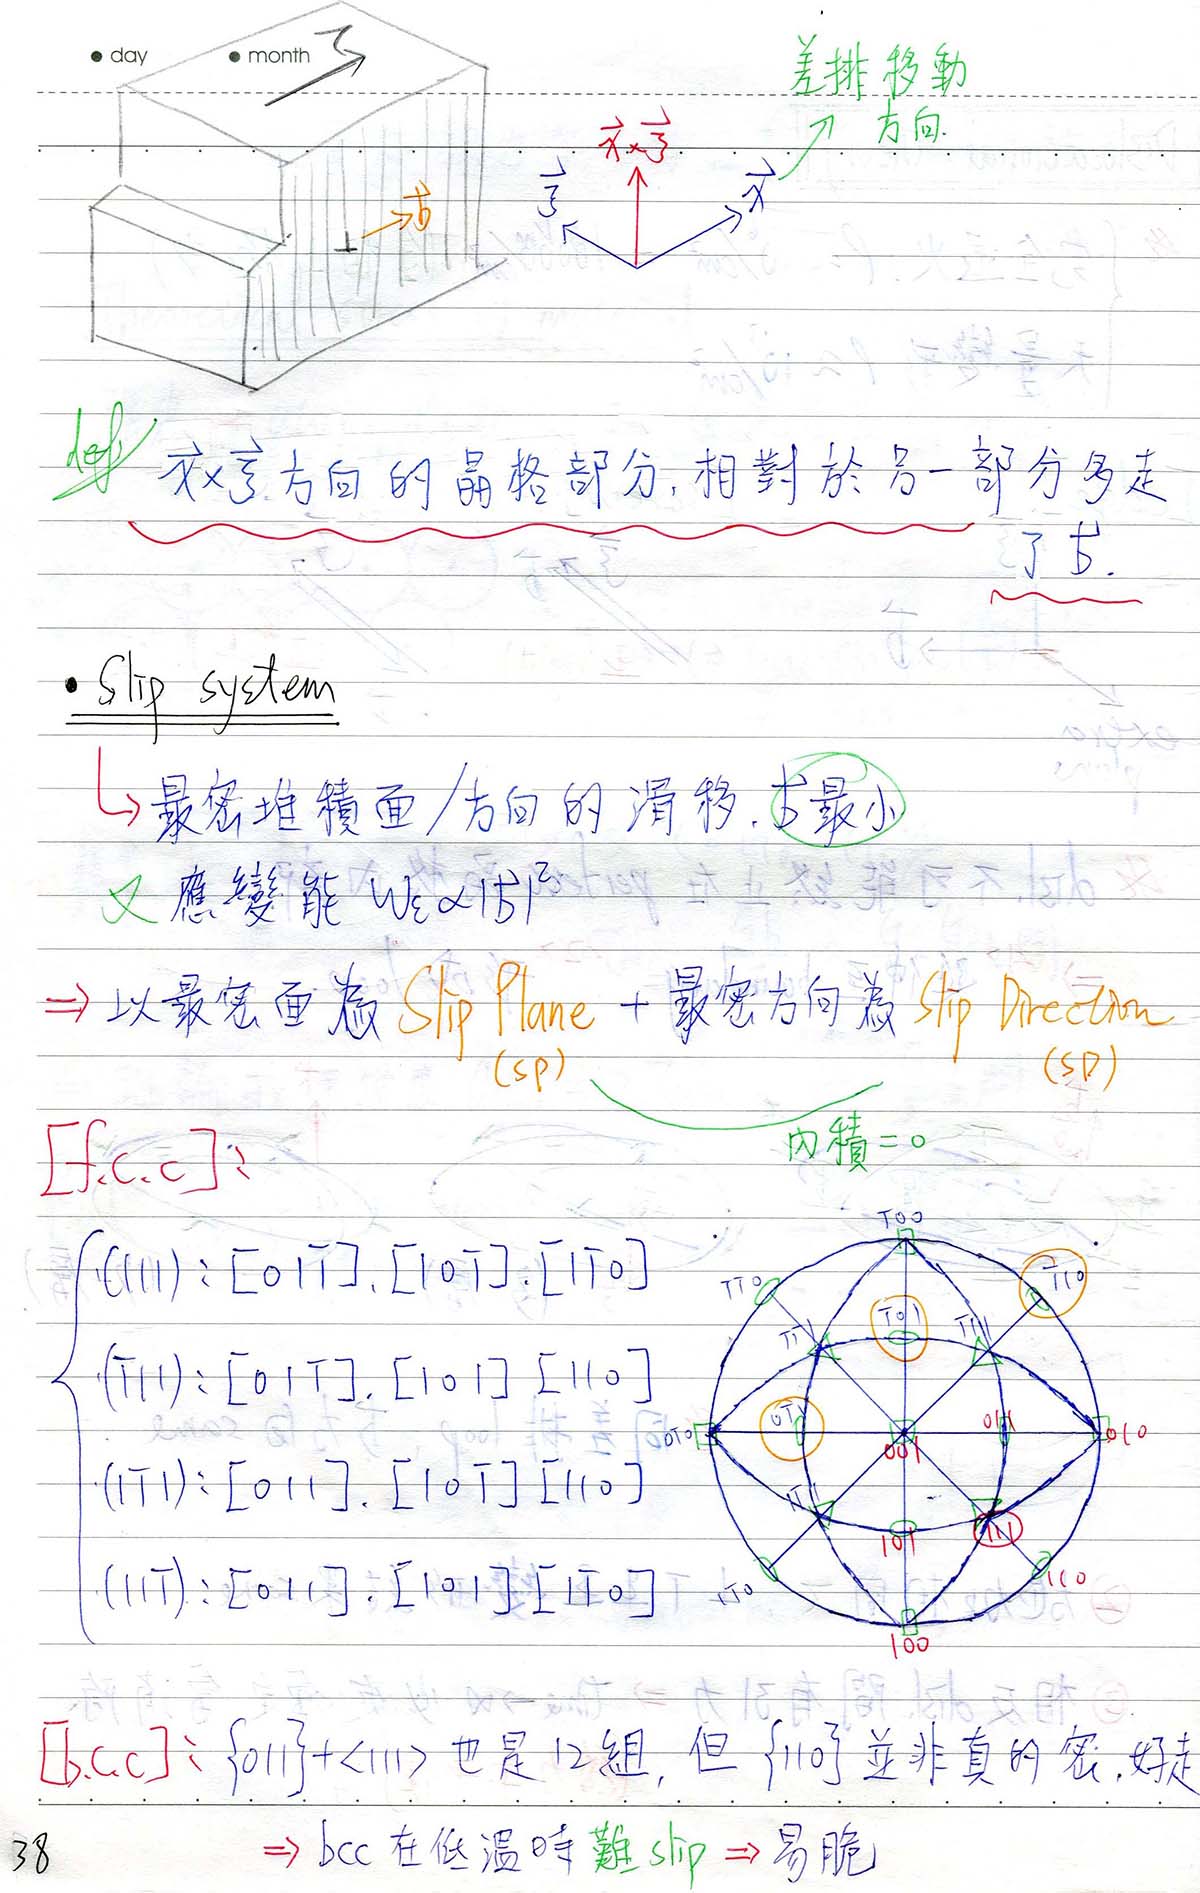 ● day ● month
差排移動
方向
x⃗×ξ⃗
ξ⃗ x⃗
b⃗
def: x⃗×ξ⃗ 方向的晶格部分,相對於另一部分多走
了 b⃗.
• Slip system
↳ 最密堆積面/方向的滑移. b⃗最小
又 應變能 Wε∝|b⃗|²
⇒ 以最密面為 Slip Plane + 最密方向為 Slip Direction
(SP) (SD)
內積=0
[f.c.c]:
(111): [011̅]. [101̅]. [11̅0]
(1̅11): [011̅]. [101] [110]
(11̅1): [011]. [101̅] [110]
(111̅): [011]. [101] [11̅0]
1̅00
1̅1̅0 1̅01 1̅10
1̅1̅1 1̅11
01̅0 01̅1 001 011 010
11̅1 101 111
11̅0 110
100
[b.c.c]: {011}+<111> 也是12組, 但 {110} 並非真的密,好走
⇒ bcc 在低溫時難 slip ⇒ 易脆
38